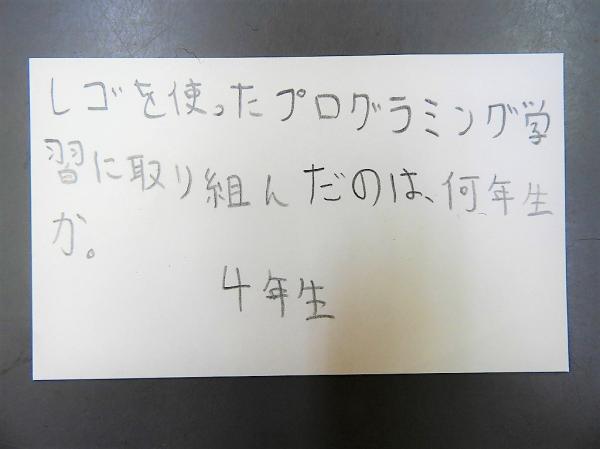 レゴを使ったプログラミング学
習に取り組んだのは、何年生
か。
4年生